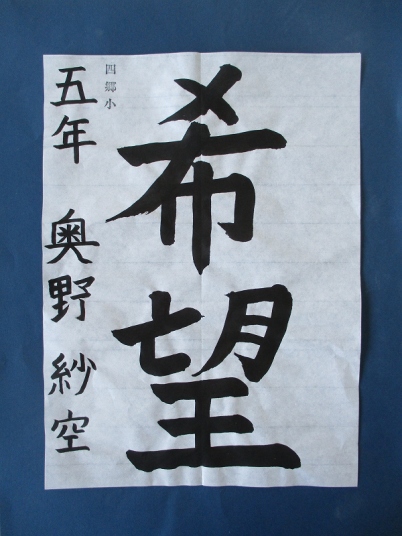 希望
四郷小
五年 奥野紗空